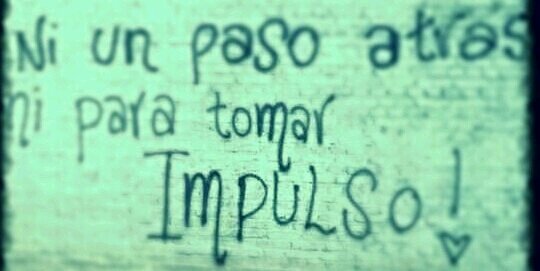 Ni un paso atrás
ni para tomar
IMPULSO!